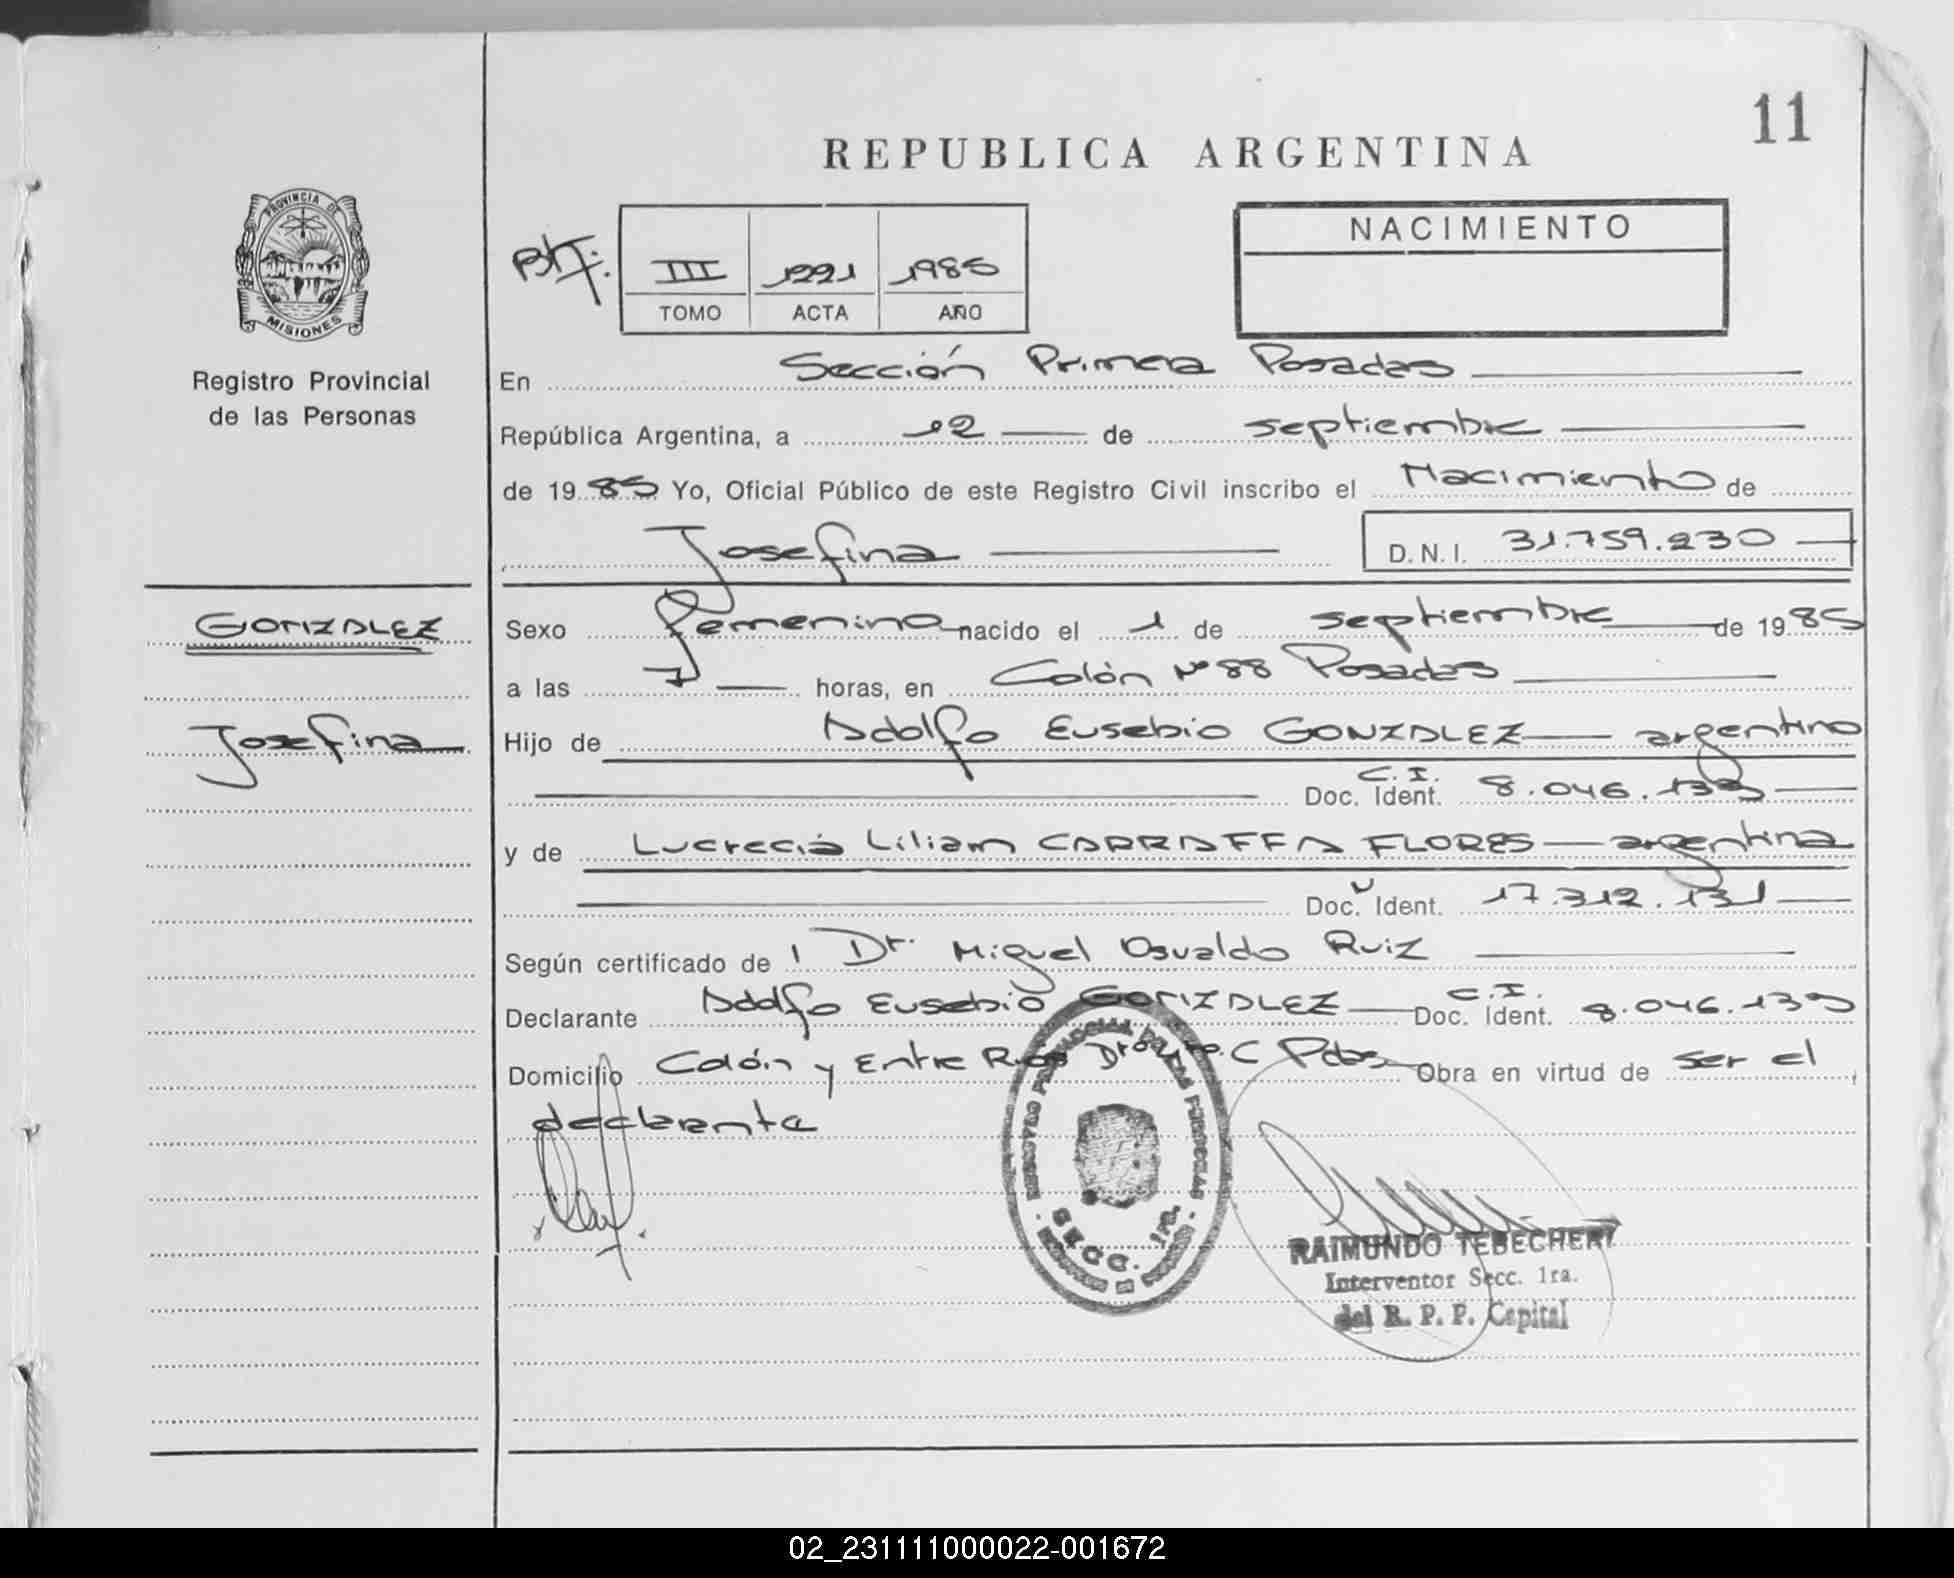 11
REPUBLICA ARGENTINA
PROVINCIA DE
MISIONES
Registro Provincial
de las Personas
NACIMIENTO
III 1221 1985
TOMO ACTA AÑO
En Sección Primera Posadas
República Argentina, a 12 de septiembre
de 1985 Yo, Oficial Público de este Registro Civil inscribo el Nacimiento de
Josefina D.N.I. 31.759.230
GONZALEZ
Josefina
Sexo femenino nacido el 1 de septiembre de 1985
a las 7 horas, en Colón Nº 88 Posadas
Hijo de Adolfo Eusebio GONZALEZ argentino
C.I.
Doc. Ident. 8.046.139
y de Lucrecia Liliam CARRAFFA FLORES argentina
Doc. Ident. 17.312.131
Según certificado de 1 Dr. Miguel Osvaldo Ruiz
C.I.
Declarante Adolfo Eusebio GONZALEZ Doc. Ident. 8.046.139
Domicilio Colón y Entre Rios C Pdas Obra en virtud de ser el
declarante
SECC. 1ra.
RAIMUNDO TEBECHERI
Interventor Secc. 1ra.
del R. P. P. Capital
02_231111000022-001672